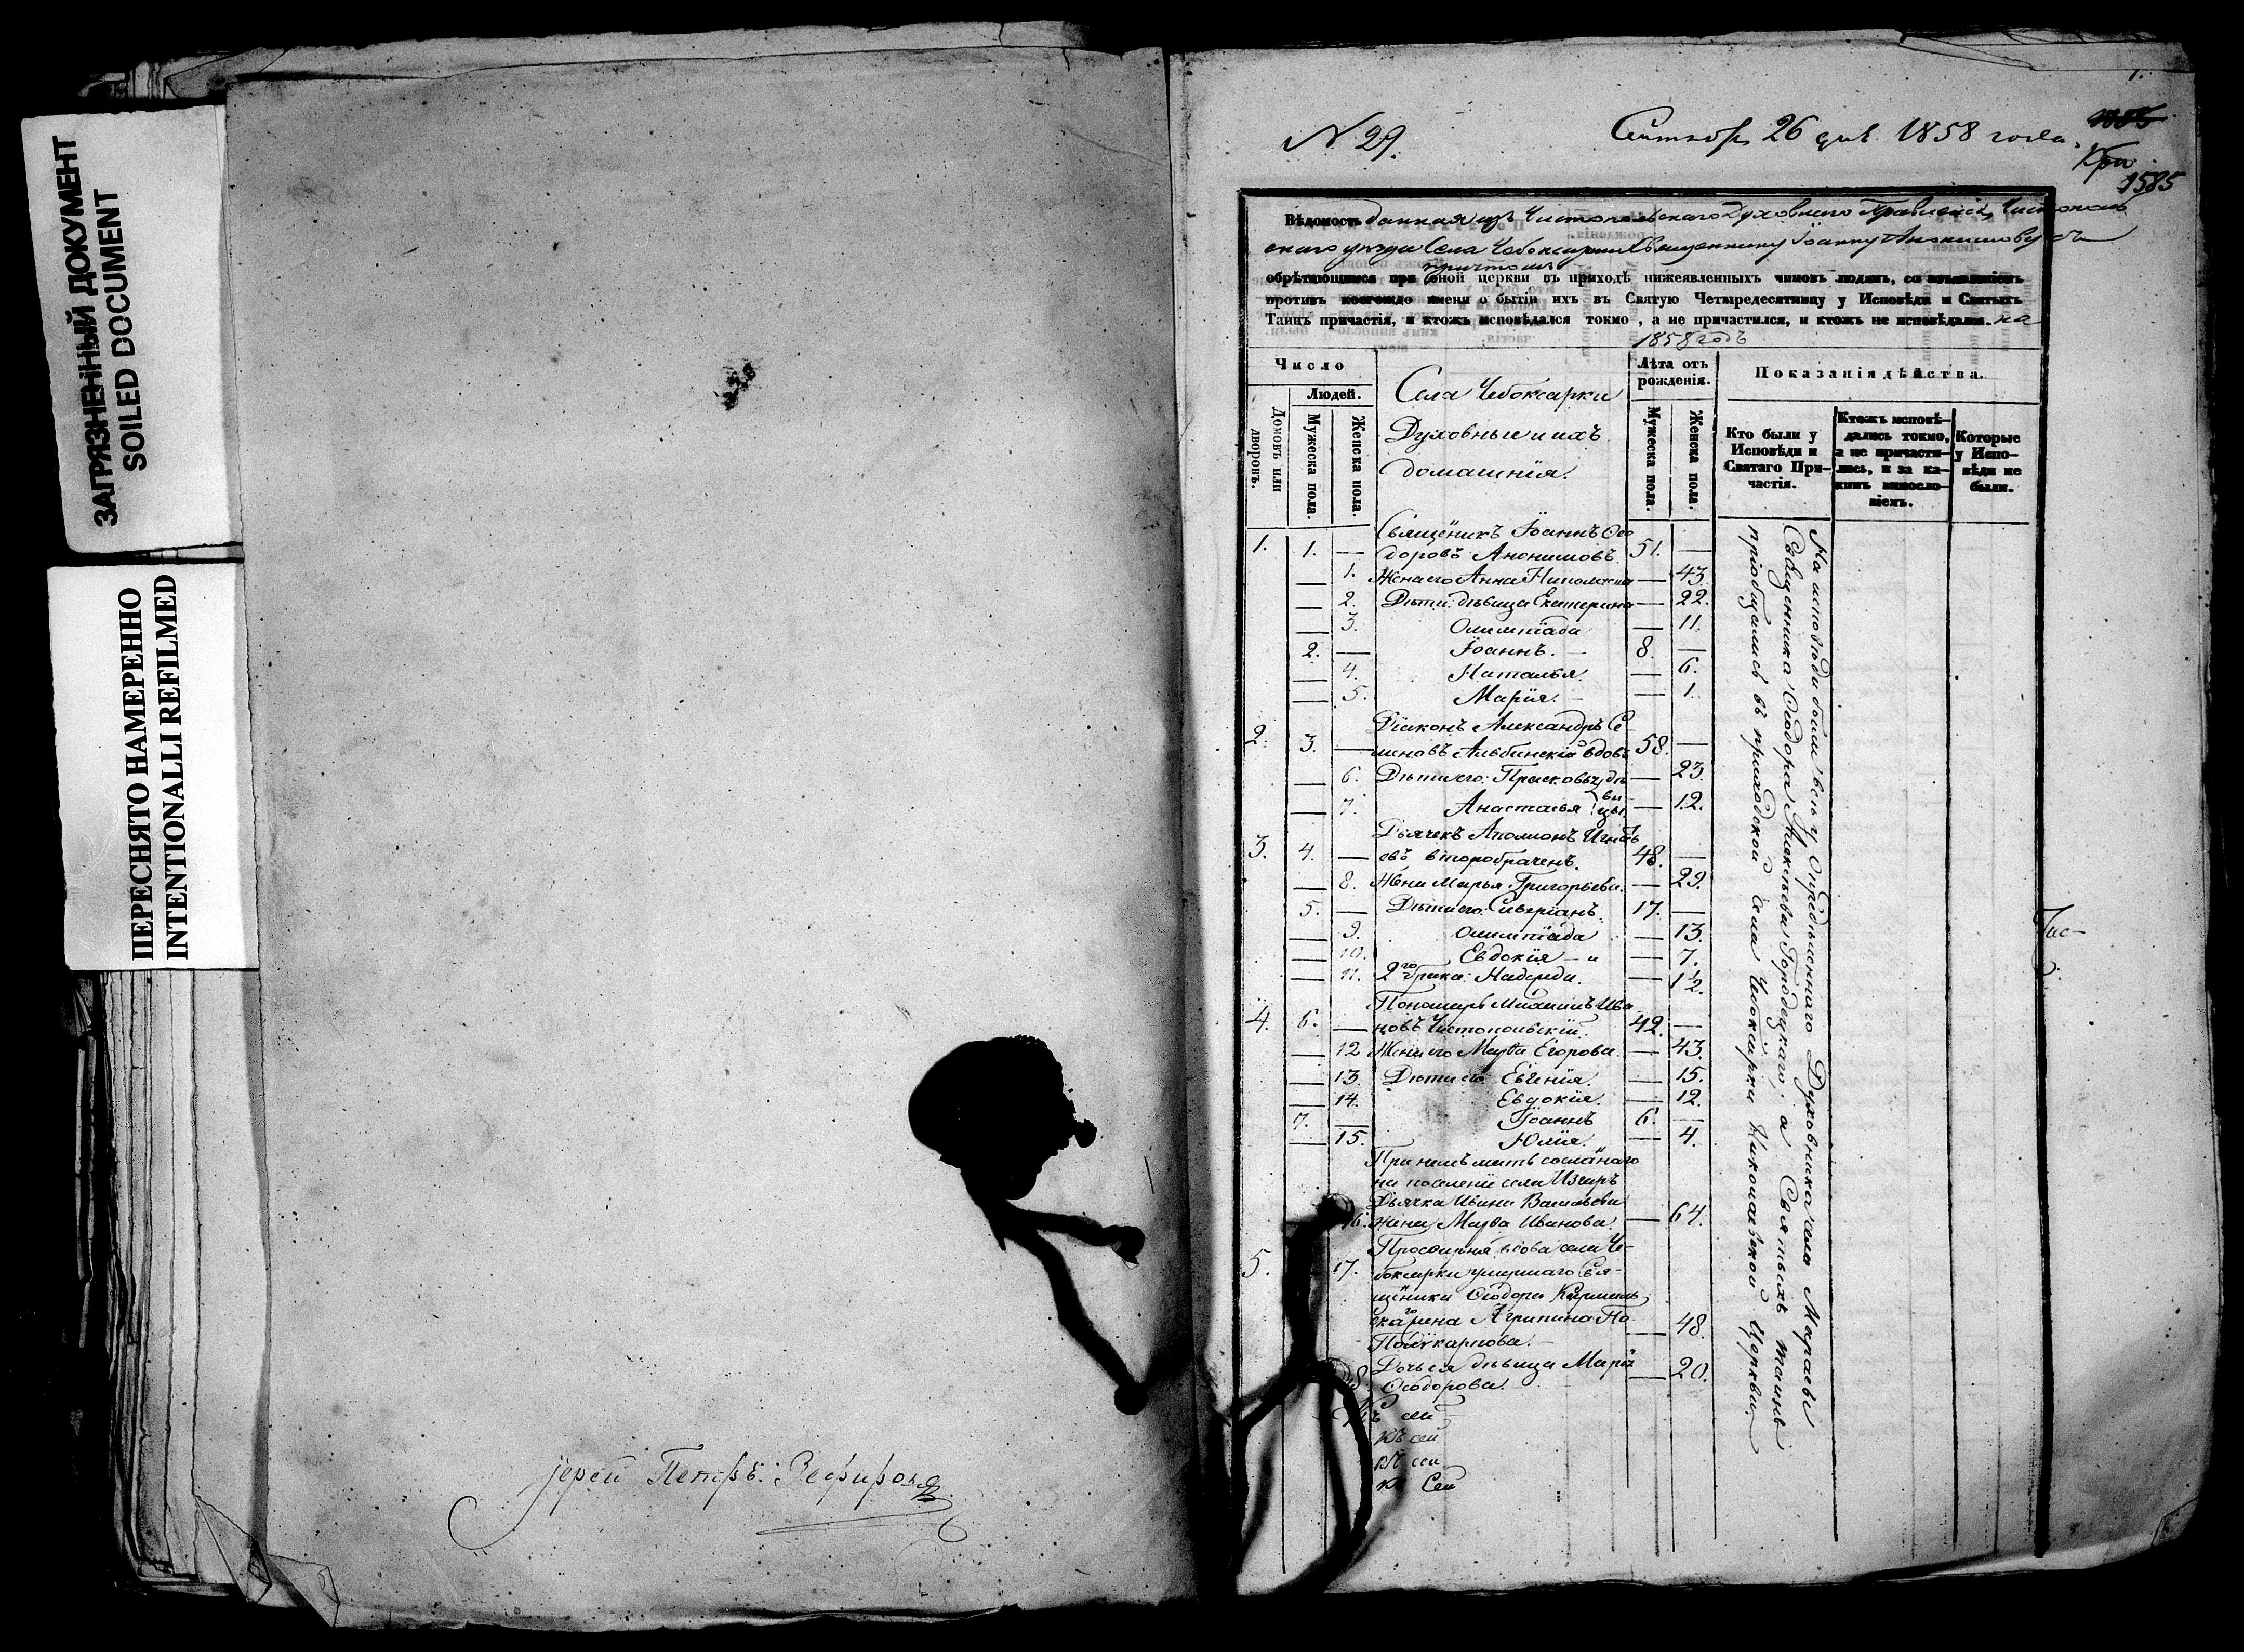 ЗАГРЯЗНЕННЫЙ ДОКУМЕНТ
SOILED DOCUMENT
ПЕРЕСНЯТО НАМЕРЕННО
INTENTIONALLI REFILMED
Іерей Петръ
1.
N 29.
26 дня 1858 года
1585
Вѣдомость данная изъ Чистопольскаго Духовнаго Правленія, Чистополь
скаго уѣзда Села Чебоксарки Священнику Іоанну Анонимову съ
причтомъ
обрѣтающимся при оной церкви въ приходѣ нижеявленныхъ чиновъ людямъ, со изъявленіемъ
противъ коегождо имени о бытіи ихъ въ Святую Четыредесятницу у Исповѣди и Святыхъ
Таинъ причастія, и ктожъ исповѣдался токмо, а не причастился, и ктожъ не исповѣдался. на
1858 годъ
Число
Людей.
Домовъ или дворовъ.
Мужеска пола.
Женска пола.
Села Чебоксарки
Духовные и ихъ
домашнія.
Лѣта отъ рожденія.
Мужеска пола.
Женска пола.
Показанія дѣйства.
Кто были у Исповѣди и Святаго Причастія.
Ктожъ исповѣдались токмо, а не причастились, и за какимъ винословіемъ.
Которые у Исповѣди не были.
Священикъ Іоаннъ Ѳео
1. 1. — доровъ Анонимовъ 51. —
— 1. Жена его Анна — 43.
— 2. Дѣти: дѣвица Екатерина — 22.
— 3. Олимпіада — 11.
2. — Іоаннъ. — 8. —
— 4. Наталья — 6.
— 5. Марія — 1.
Діаконъ Александръ Се
2. 3. — меновъ Альбинскій вдовъ 58. —
— 6. Дѣти его: Прасковья дѣ — 23.
— 7. Анастасья вицы — 12.
Дьячекъ Аполлонъ Игнать
3. 4. — евъ второбраченъ. 48. —
— 8. Жена Марья Григорьева. — 29.
5. — Дѣти его: Северіанъ 17. —
— 9. Олимпіада — 13.
— 10. Евдокія — 7.
— 11. 2го брака: Надежда. — 1½
Пономарь Михаилъ Ива
4. 6. — новъ Чистопольскій. 42. —
— 12 Жена его Марѳа Егорова. — 43.
— 13. Дѣти его Евгенія. — 15.
— 14. Евдокія. — 12.
7. — Іоаннъ 6. —
— 15. Юлія. — 4.
При немъ мать сосланаго
на поселеніе села
Дьячка Ивана Васильева
16. Жена Марѳа Иванова. — 64.
Просвирня вдова села Че-
5. 17. боксарки умершаго Свя-
щеника Ѳеодора
скаго жена Агрипина По
Поликарпова. — 48.
18. Дочь ея дѣвица Марія — 20.
Ѳеодорова.
Къ сей
Къ сей
Къ сей
Къ Сей
На исповѣди были всѣ у опредѣленнаго Духовника села Мараеы
Священника Ѳеодора Алексѣева Городецкаго, а Святыхъ таинъ
пріобщались въ приходской села Чебоксарки Николаевской Церкви
Чис-